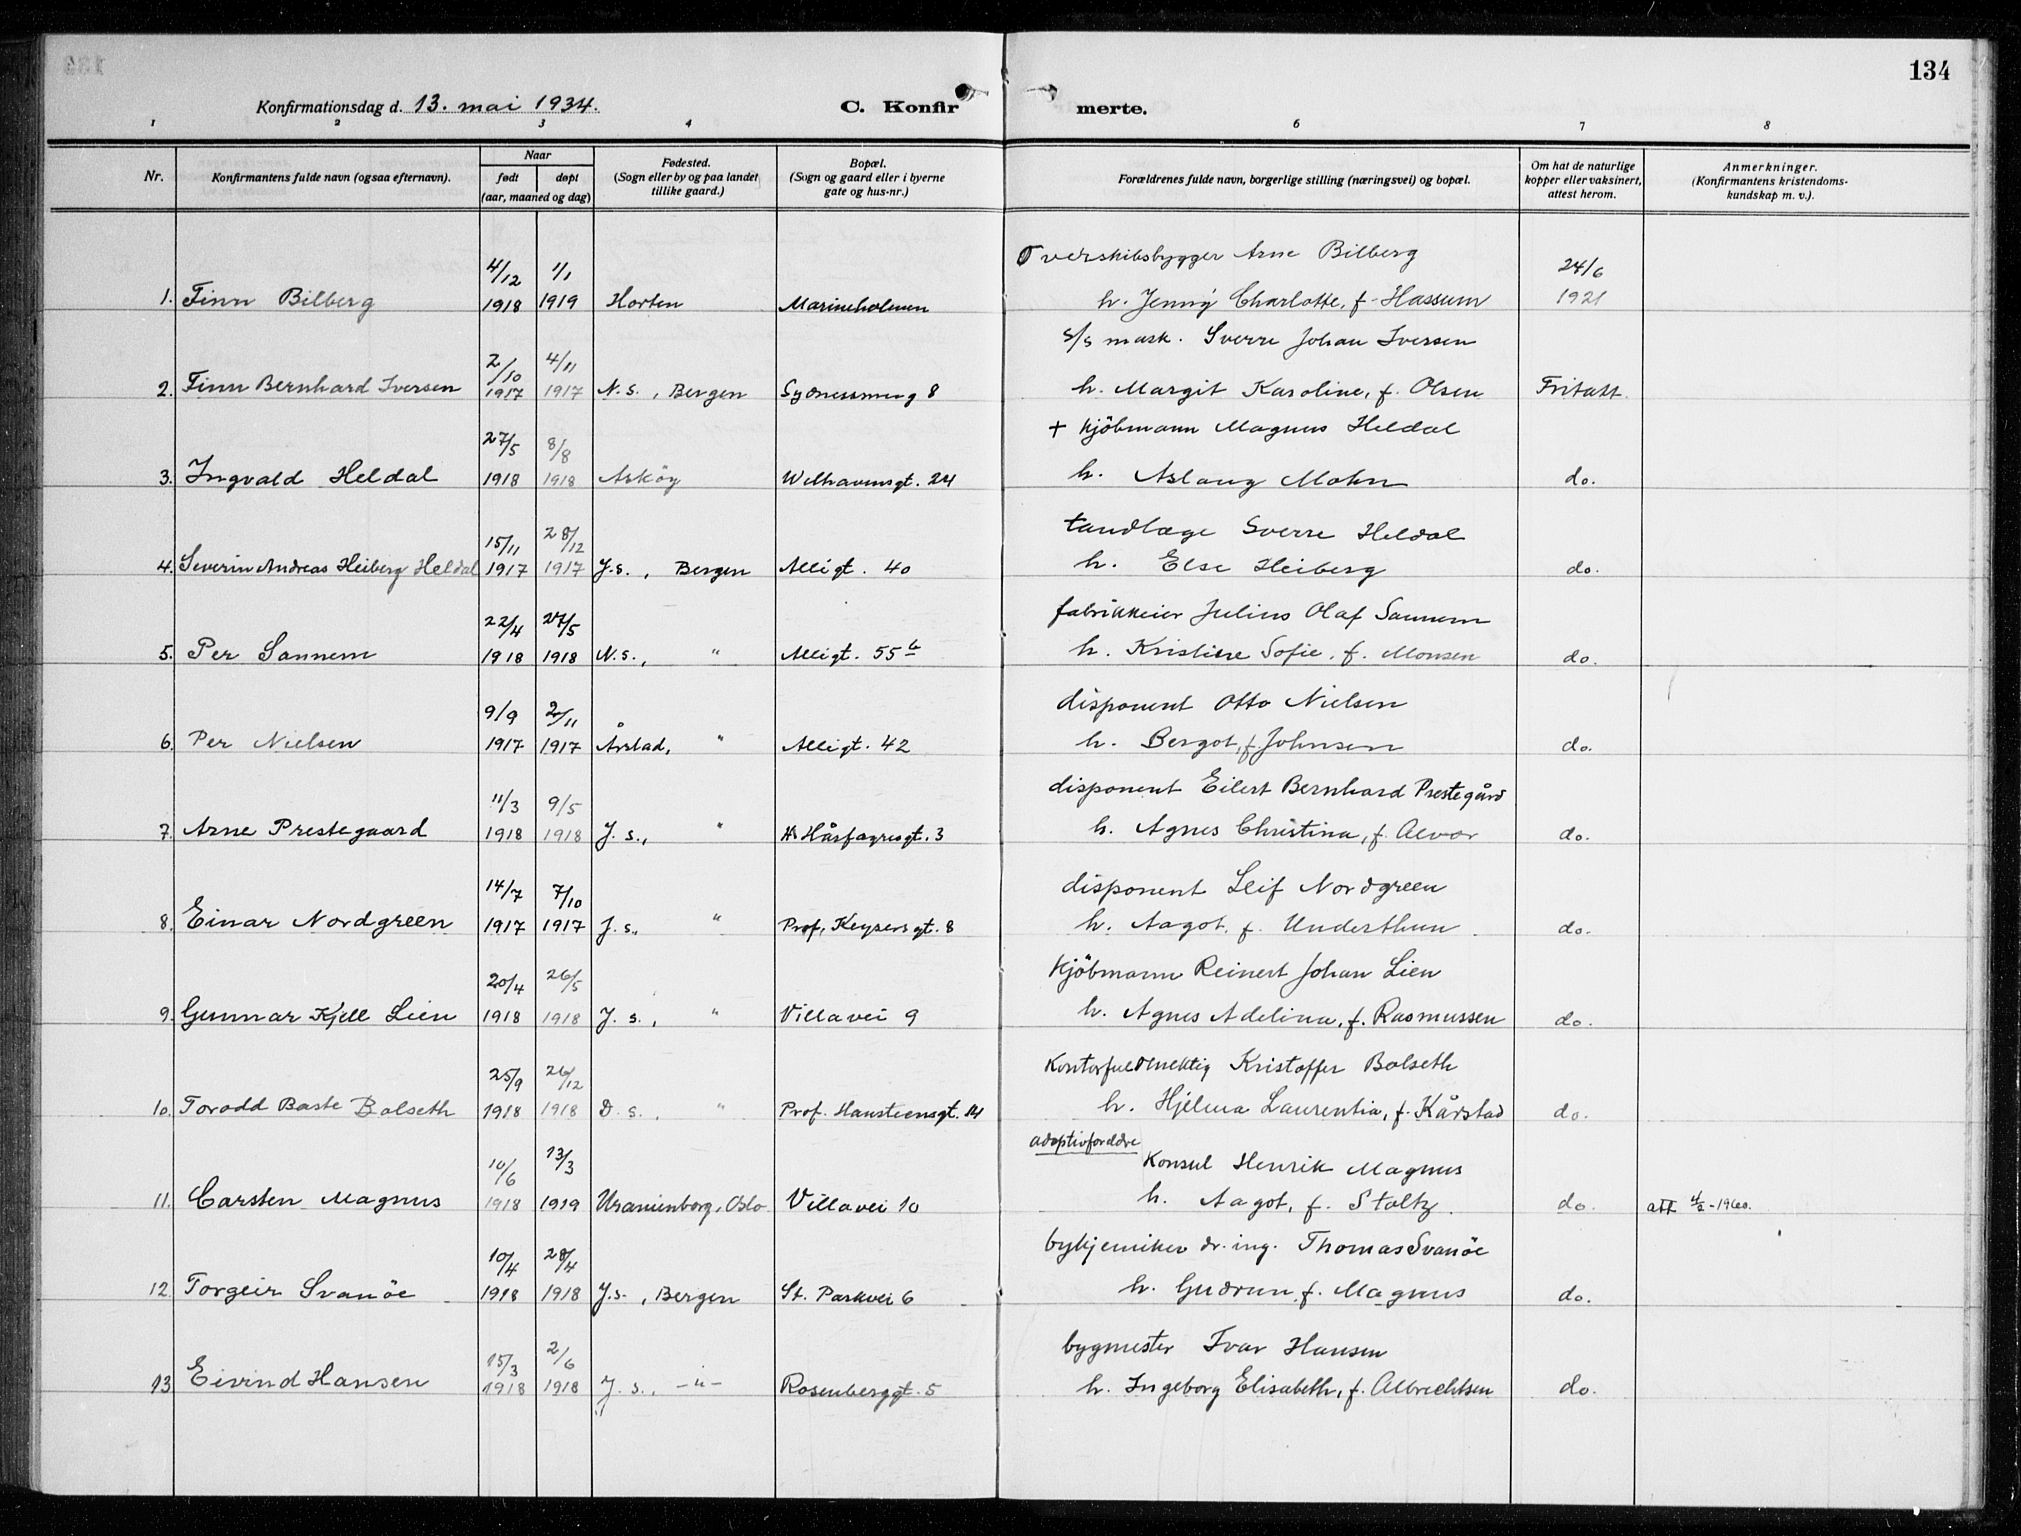 134
Konfirmationsdag d. 13. mai 1934. C. Konfirmerte.
1 2 3 4 6 7 8
Nr. Konfirmantens fulde navn (ogsaa efternavn). Naar født døpt (aar, maaned og dag) Fødested. (Sogn eller by og paa landet tillike gaard.) Bopæl. (Sogn og gaard eller i byerne gate og hus-nr.) Forældrenes fulde navn, borgerlige stilling (næringsvei) og bopæl. Om hat de naturlige kopper eller vaksinert, attest herom. Anmerkninger. (Konfirmantens kristendoms-kundskap m. v.).
4/12 1/1 Overskibsbygger Arne Bilberg 24/6
1. Finn Bilberg 1918 1919 Horten Marineholmen h. Jenny Charlotte, f. Hassum 1921
2/10 4/11 s/s mask. Sverre Johan Iversen
2. Finn Bernhard Iversen 1917 1917 N. s., Bergen Sydnessmug 8 h. Margit Karoline, f. Olsen Fritatt.
27/5 8/8 + Kjöbmann Magnus Heldal
3. Ingvald Heldal 1918 1918 Asköy Welhavensgt. 24 h. Aslaug Mohn do.
15/11 28/12 tandlæge Sverre Heldal
4. Severin Andreas Heiberg Heldal 1917 1917 J. s., Bergen Allégt. 40 h. Else Heiberg do.
22/4 27/5 fabrikkeier Julius Olaf Sannem
5. Per Sannem 1918 1918 N. s., " Allégt. 55 b h. Kristine Sofie, f. Monsen do.
9/9 2/11 disponent Otto Nielsen
6. Per Nielsen 1917 1917 Årstad, " Allégt. 42 h. Bergot, f. Johnsen do.
11/3 9/5 disponent Eilert Bernhard Prestegård
7. Arne Prestegaard 1918 1918 J. s., " H. Hårfagresgt. 3 h. Agnes Christina, f. Alvær do.
14/7 7/10 disponent Leif Nordgreen
8. Einar Nordgreen 1917 1917 J. s., " Prof. Keysersgt. 8 h. Aagot, f. Underthun do.
20/4 26/5 Kjöbmann Reinert Johan Lien
9. Gunnar Kjell Lien 1918 1918 J. s., " Villavei 9 h. Agnes Adelina, f. Rasmussen do.
25/9 26/12 Kontorfuldmektig Kristoffer Bolseth
10. Torodd Baste Bolseth 1918 1918 D. s., " Prof. Hansteensgt. 14 h. Hjelma Laurentia, f. Kårstad do.
adoptivforeldre
10/6 13/3 Konsul Henrik Magnus
11. Carsten Magnus 1918 1919 Uranienborg, Oslo Villavei 10 h. Aagot, f. Stoltz. do. att 4/2-1960.
10/4 28/4 bykjemiker dr. ing. Thomas Svanöe
12. Torgeir Svanöe 1918 1918 J. s., Bergen St. Parkvei 6 h. Gudrun, f. Magnus do.
15/3 2/6 bygmester Ivar Hansen
13. Eivind Hansen 1918 1918 J. s., -"- Rosenberggt. 5 h. Ingeborg Elisabeth, f. Albrechtsen do.